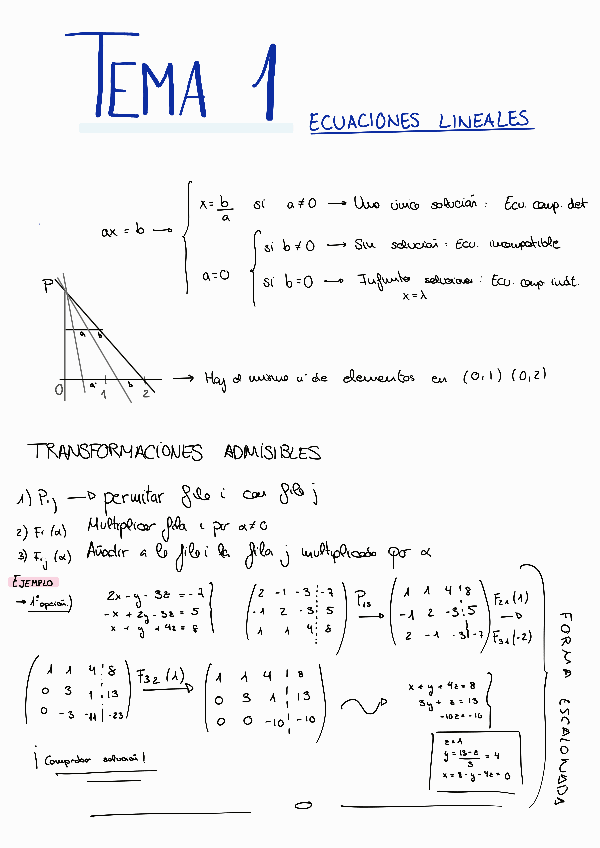 TEMA 1
ECUACIONES LINEALES
ax = b → x = b/a si a ≠ 0 → Una única solución : Ecu. comp. det
a=0 si b ≠ 0 → Sin solución : Ecu. incompatible
si b=0 → Infinitas soluciones : Ecu. comp indt.
x = λ
P
a b
0 a' b 1 2
→ Hay el mismo nº de elementos en (0,1) (0,2)
TRANSFORMACIONES ADMISIBLES
1) Pij → permutar fila i con fila j
2) Fi (α) Multiplicar fila i por α≠0
3) Fij (α) Añadir a la fila i la fila j multiplicado por α
EJEMPLO
→ 1ª opción)
2x - y - 3z = -7
-x + 2y - 3z = 5
x + y + 4z = 8
2 -1 -3 -7
-1 2 -3 5
1 1 4 8
P13 →
1 1 4 8
-1 2 -3 5
2 -1 -3 -7
F21 (1)
→
F31 (-2)
1 1 4 8
0 3 1 13
0 -3 -11 -23
F32 (1) →
1 1 4 8
0 3 1 13
0 0 -10 -10
x + y + 4z = 8
3y + z = 13
-10z = -10
z = 1
y = 13-z/3 = 4
x = 8 - y - 4z = 0
FORMA ESCALONADA
¡Comprobar solución!